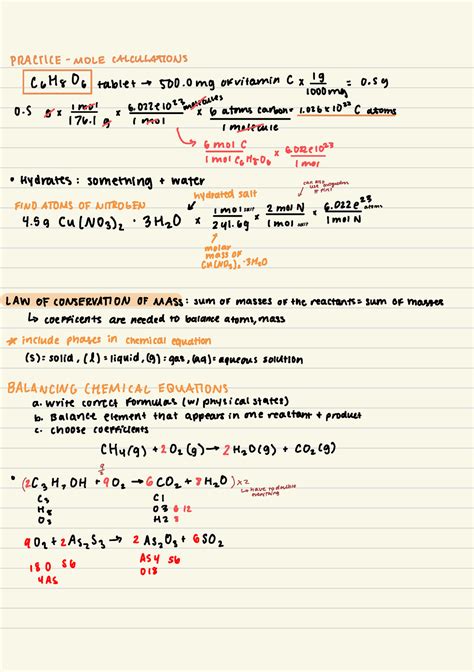 PRACTICE - MOLE CALCULATIONS
C6H8O6 tablet → 500.0 mg of vitamin C × 1g / 1000mg = 0.5g
0.5 g × 1 mol / 176.1 g × 6.022e23 molecules / 1 mol × 6 atoms carbon / 1 molecule = 1.026 × 10²² C atoms
↳ 6 mol C / 1 mol C6H8O6 × 6.022e23 / 1 mol
• Hydrates: something + water
hydrated salt
FIND ATOMS OF NITROGEN
4.5g Cu(NO3)2 · 3H2O × 1 mol salt / 241.6g × 2 mol N / 1 mol salt × 6.022e23 atoms / 1 mol N
↑ molar mass of Cu(NO3)2 · 3H2O
LAW OF CONSERVATION OF MASS: sum of masses of the reactants = sum of masses
↳ coefficents are needed to balance atoms, mass
* include phases in chemical equation
(s) = solid, (l) = liquid, (g) : gas, (aq) = aqueous solution
BALANCING CHEMICAL EQUATIONS
a. Write correct formulas (w/ physical states)
b. Balance element that appears in one reactant + product
c. choose coefficients
CH4(g) + 2O2(g) → 2H2O(g) + CO2(g)
• (2C3H7OH + 9O2 → 6CO2 + 8H2O) × 2
↳ have to double everything
C3 C1
H8 O3 6 12
O3 H2 8
9O2 + 2As2S3 → 2As2O3 + 6SO2
18O S6 AS4 S6
4AS O18